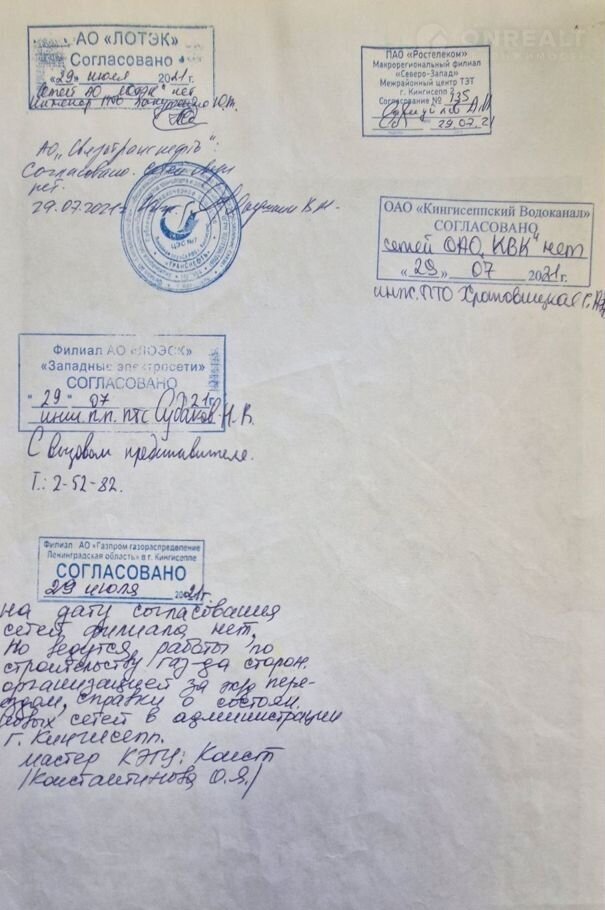 АО «ЛОТЭК»
Согласовано
«29» июля 2021г.
сетей АО "ЛОТЭК" нет
Инженер ПТО
ONREALT
ПАО «Ростелеком»
Макрорегиональный филиал
«Северо-Запад»
Межрайонный центр ТЭТ
г. Кингисепп
Согласование № 135
29.07.21
АО „Связьтранснефть":
Согласовано. Сетей связи
нет.
29.07.2021г. Инж.
ЦЭС №7
"ТРАНСНЕФТЬ"
ОАО «Кингисеппский Водоканал»
СОГЛАСОВАНО
сетей ОАО „КВК" нет
«29» 07 2021г.
инж. ПТО Храповицкая
Филиал АО «ЛОЭСК»
«Западные электросети»
СОГЛАСОВАНО
"29" 07 2021г.
инж. п.п. ПТС Судаков Н.В.
С вызовом представителя.
Т.: 2-52-82.
Филиал АО «Газпром газораспределение
Ленинградская область» в г. Кингисеппе
СОГЛАСОВАНО
29 июля 2021г
на дату согласования
сетей филиала нет.
Но ведутся работы по
строительству газ-да сторон.
организацией за ж/д пере-
ездом, справки о состоян.
новых сетей в администрации
г. Кингисепп.
мастер КЭГУ: Конст
/Константинова О.Я./